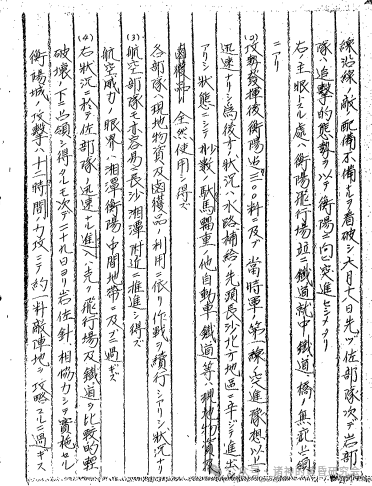 線沿線ノ敵ノ配備不備ナルヲ看破シ六月十八日先ツ佐部隊次テ岩部
隊ハ追撃的態勢ヲ以テ衡陽ニ向ヒ突進セシメタリ
右ノ主眼トスル處ハ衡陽飛行場並ニ鐵道就中鐵道橋ノ無疵占領
ニアリ
(2)攻勢發揮後衡陽迄三〇〇粁ニ及ブ當時軍第一線ノ突進豫想以上
迅速ナリシ為後方ノ状況ハ水路補給ノ先頭長沙北方地區ニ辛シテ進出
アリシ状態ニシテ少数ノ駄馬輜重ノ他自動車鐵道等ハ現地物資
鹵獲品ハ全然使用シ得ズ
各部隊ハ現地物資及鹵獲品ノ利用ニ依リ作戦ヲ續行シアリシ状況ナリ
(3)航空部隊モ亦容易ニ長沙湘潭附近ニ推進シ得ズ
航空威力ノ限界ハ湘潭衡陽中間地帯ニ及ブニ過ギズ
(4)右状況ニ於テ佐部隊ノ迅速ナル進入ハ克ク飛行場及鐵道ヲ比較的輕
破壊ノ下ニ占領シ得タルモ次テ二十九日ヨリ岩佐針相協力シテ實施セル
衡陽城ノ攻撃ハ十二時間ノ力攻ニテ約一粁敵陣地ヲ攻略スルニ過ギス